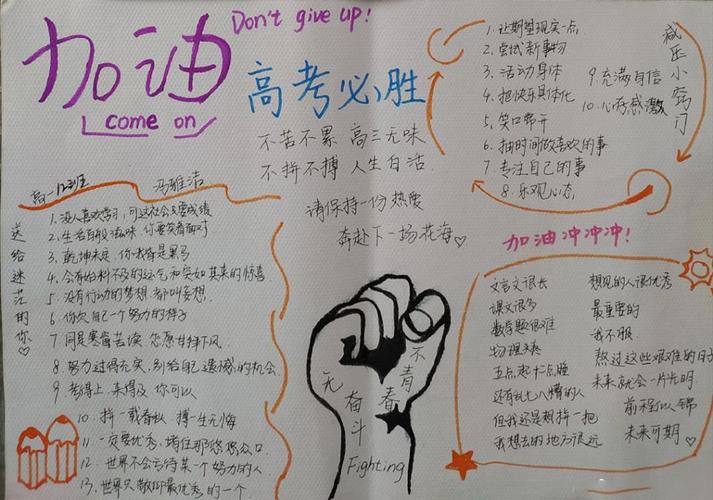 加油
come on
Don't give up!
高考必胜
不苦不累 高三无味
不拼不搏 人生白活
请保持一份热爱
奔赴下一场花海♡
减压小窍门
1. 让期望现实一点
2. 尝试新事物
3. 活动身体
4. 把快乐具体化
5. 笑口常开
6. 抽时间做喜欢的事
7. 专注自己的事
8. 乐观心态
9. 充满自信
10. 心存感激
高一12班 冯雅洁
送给迷茫的你♡
1. 没人喜欢学习，可这社会只要成绩
2. 生活百般滋味 你要笑着面对
3. 乾坤未定 你我皆是黑马
4. 会有始料不及的运气和突如其来的惊喜
5. 没有行动的梦想 都叫妄想.
6. 你欠自己一个努力的样子
7 同是寒窗苦读 怎愿甘拜下风
8. 努力过得充实，别给自己遗憾的机会
9. 考得上，来得及，你可以
10. 拼一载春秋 搏一生无悔
11. 一定要优秀，堵住那悠悠众口
12. 世界不会亏待某一个努力的人
13. 世界只敬仰最优秀的一个
无奋斗
不青春
Fighting
加油冲冲冲!
文言文很长
课文很多
数学题很难
物理
五点起十二点睡
还有乱七八糟的人
但我还是想拼一把
我想去的地方很远
想见的人很优秀
最重要的
我不服
熬过这些艰难的日子
未来就会一片光明.
前程似锦
未来可期♡